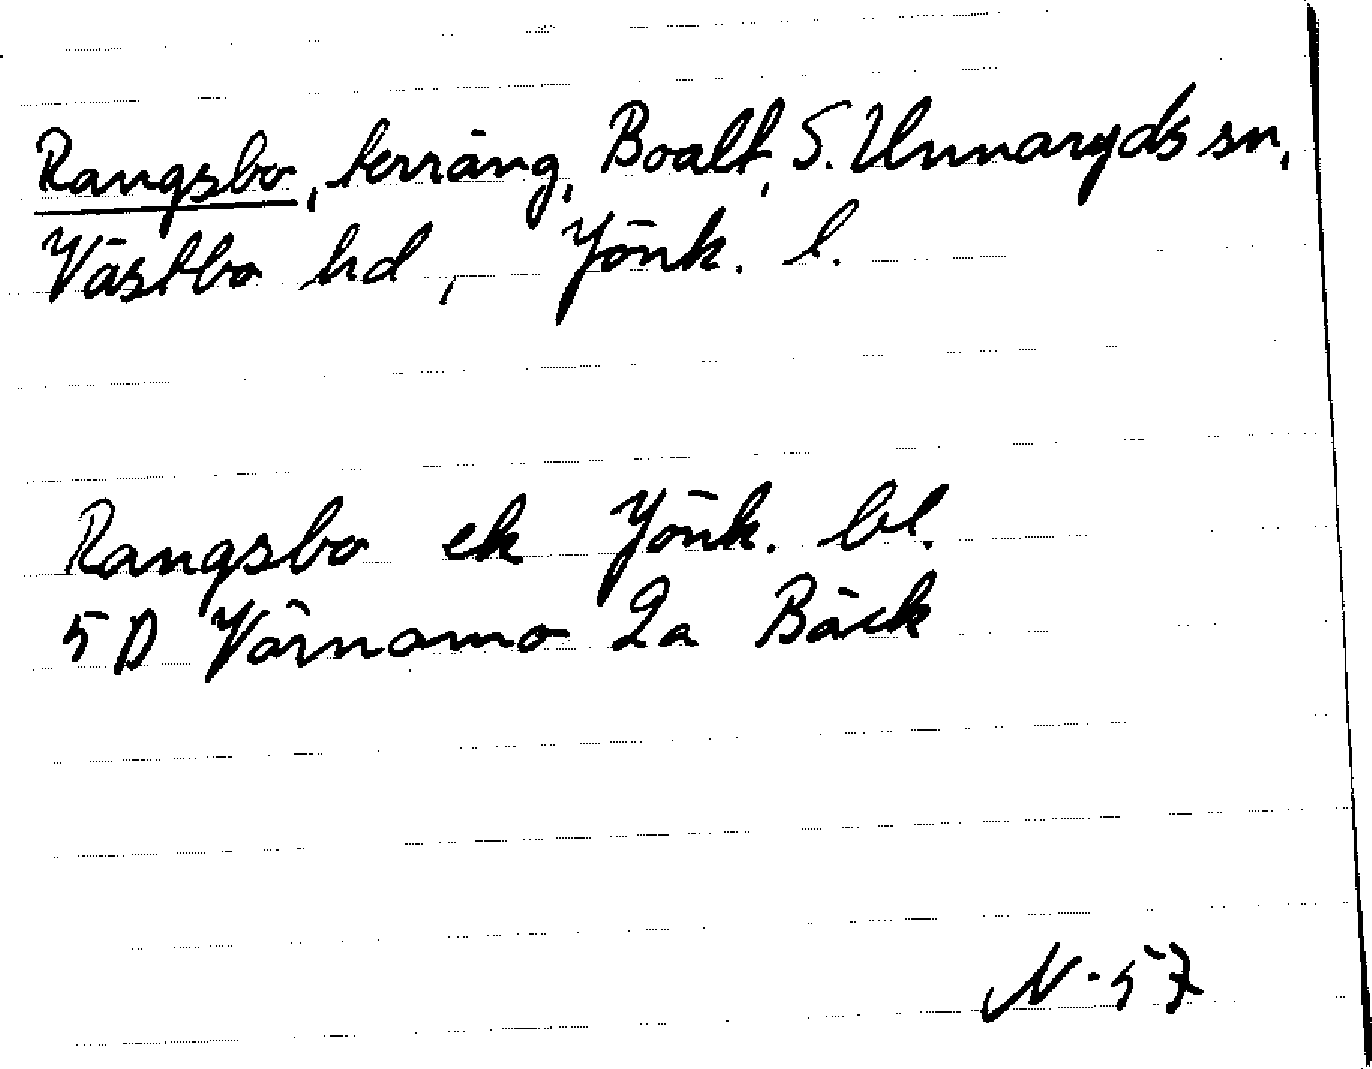 Rangsbo, terräng, Boalt, S. Unnaryds sn,
Västbo hd, Jönk. l.
Rangsbo ek Jönk. bl.
5D Värnamo 2a Bäck
N-57